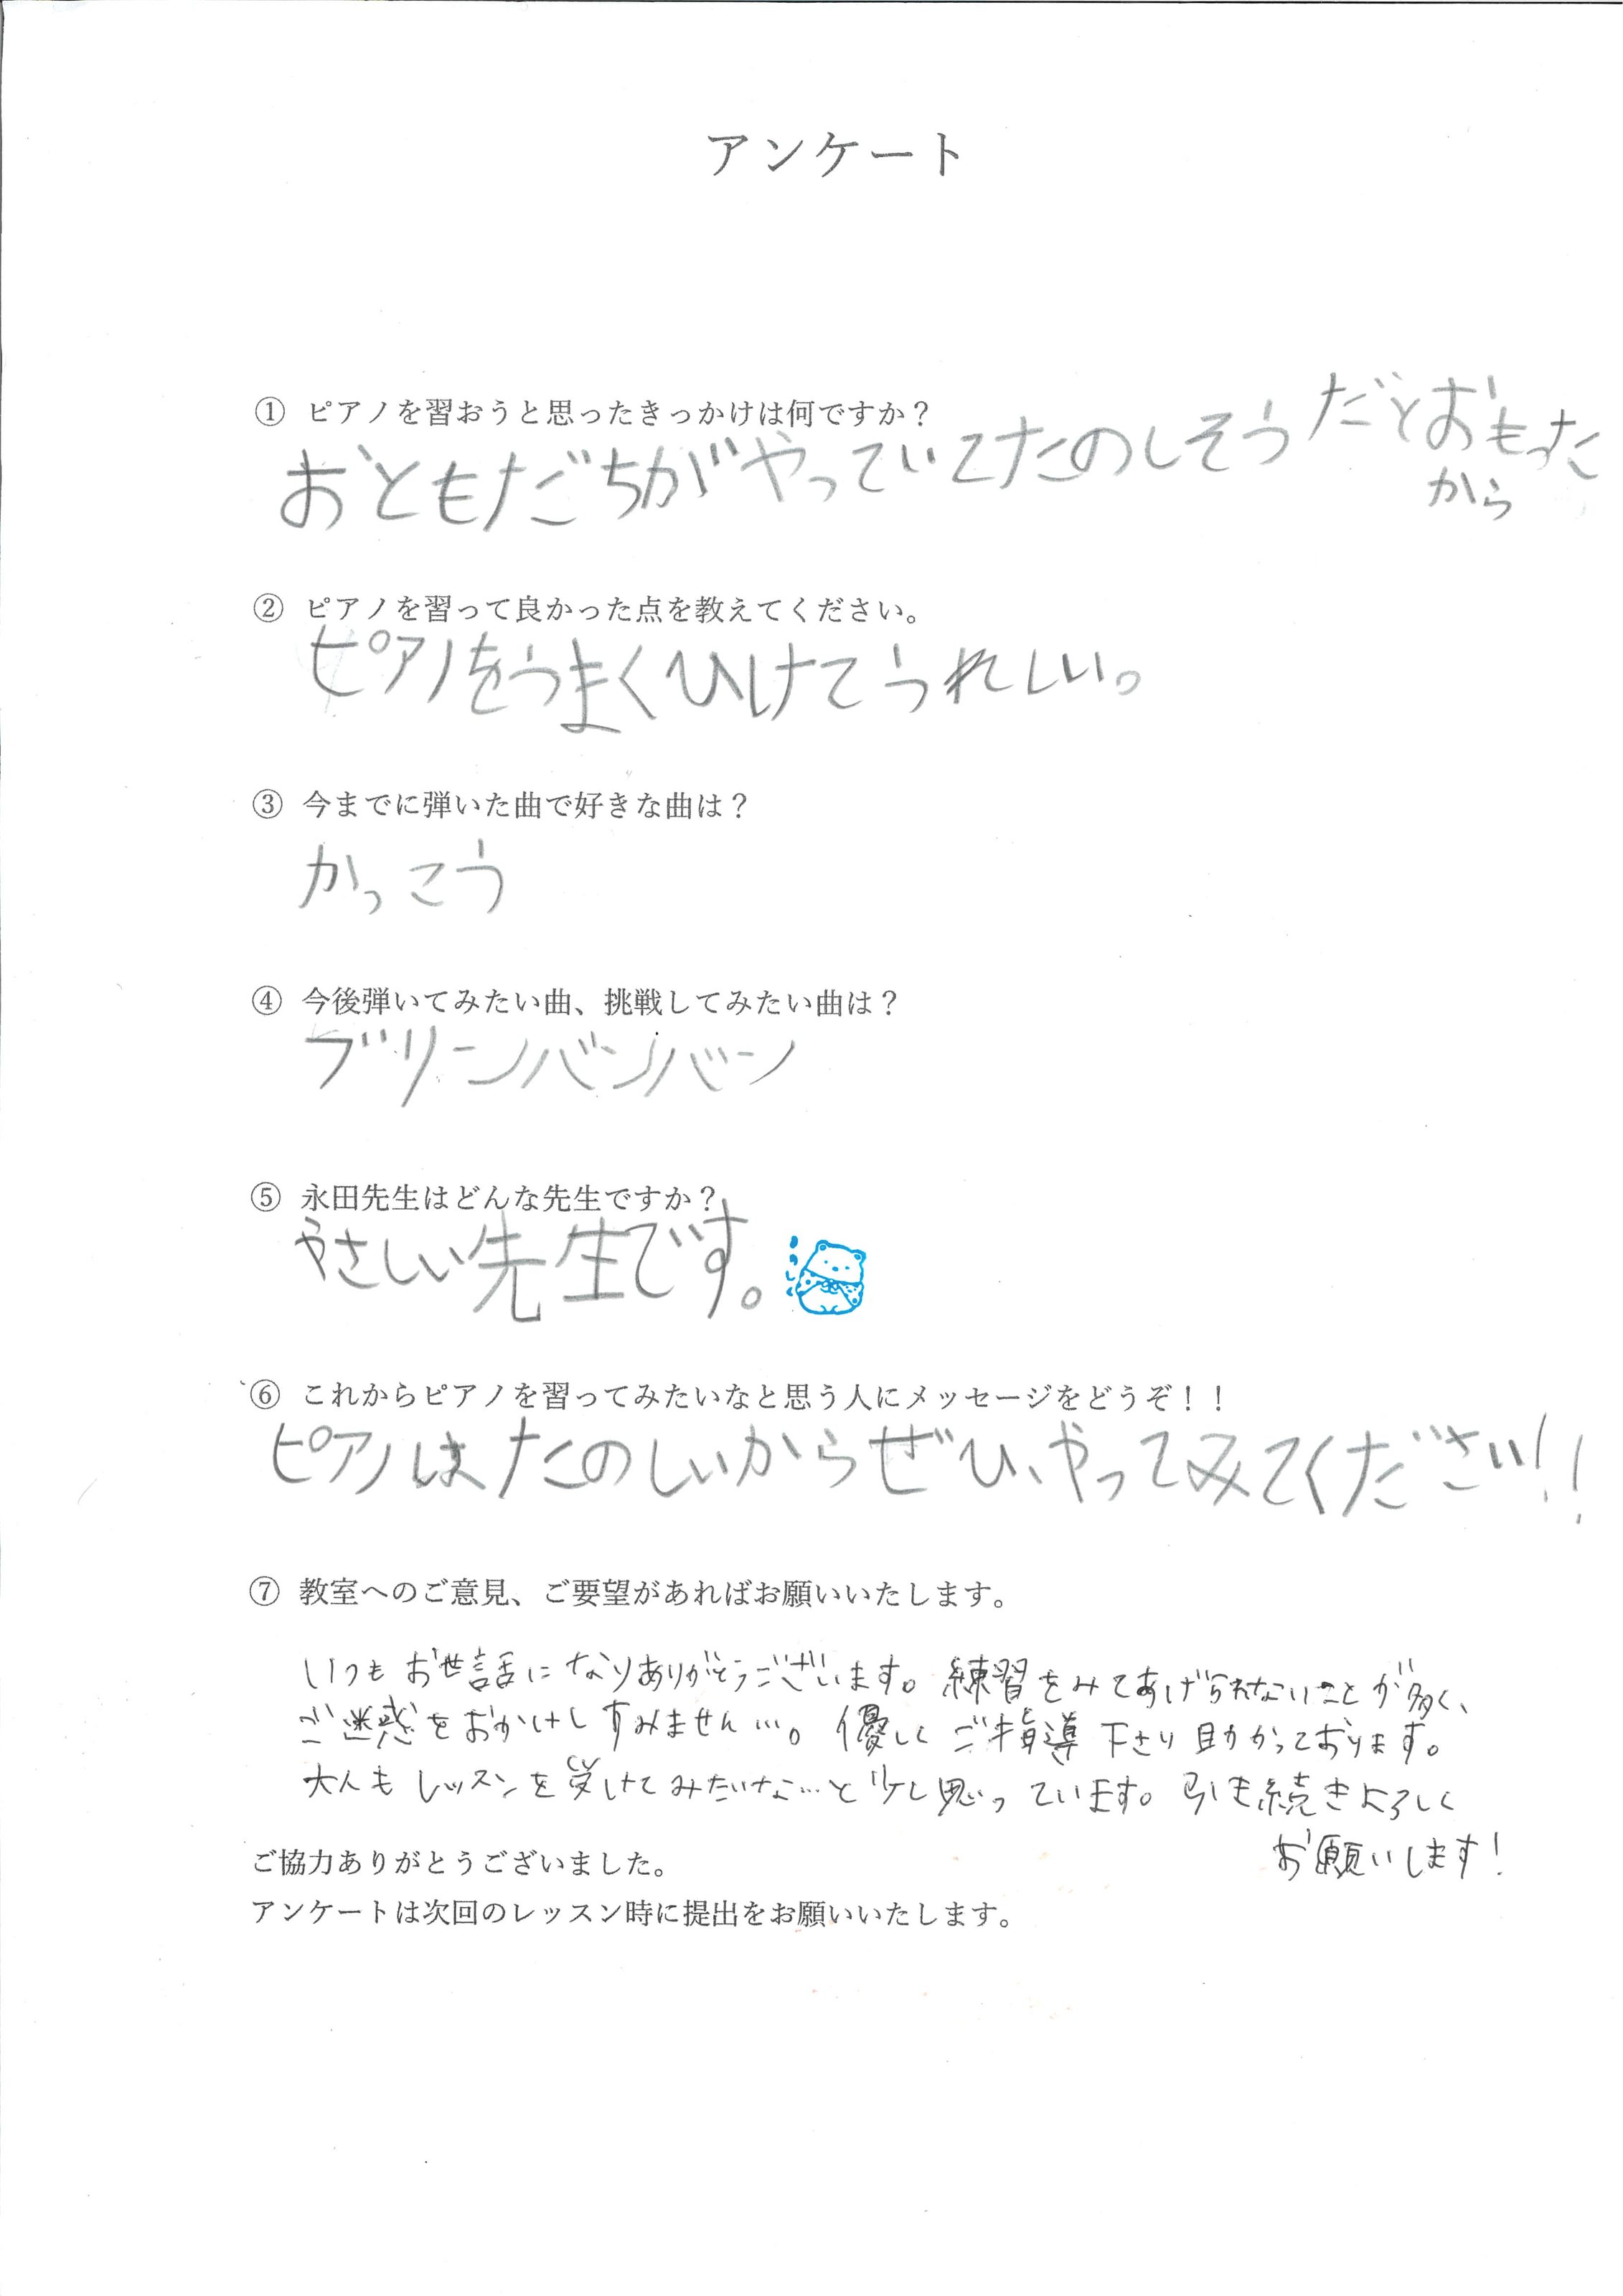 アンケート
① ピアノを習おうと思ったきっかけは何ですか？
おともだちがやっていてたのしそうだとおもった
から
② ピアノを習って良かった点を教えてください。
ピアノをうまくひけてうれしい。
③ 今までに弾いた曲で好きな曲は？
かっこう
④ 今後弾いてみたい曲、挑戦してみたい曲は？
ブリンバンバン
⑤ 永田先生はどんな先生ですか？
やさしい先生です。
⑥ これからピアノを習ってみたいなと思う人にメッセージをどうぞ！！
ピアノはたのしいからぜひ、やってみてください!!
⑦ 教室へのご意見、ご要望があればお願いいたします。
いつもお世話になりありがとうございます。練習をみてあげられないことが多く、
ご迷惑をおかけしすみません…。優しくご指導下さり助かっております。
大人もレッスンを受けてみたいな…と少し思っています。引き続きよろしく
お願いします！
ご協力ありがとうございました。
アンケートは次回のレッスン時に提出をお願いいたします。